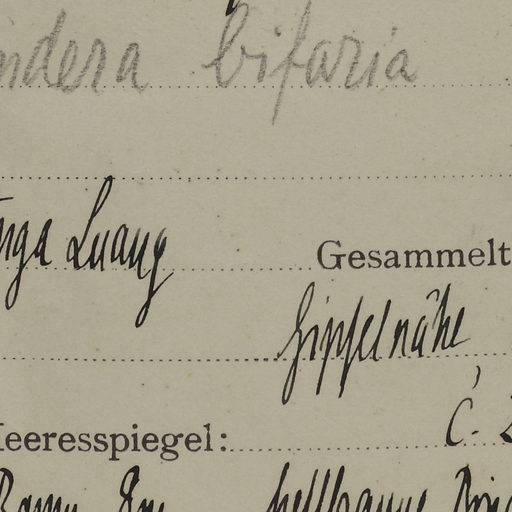 ndera bifaria
nga Luang Gesammelt
Gipfelnähe
eeresspiegel: c. 2
hellbraune